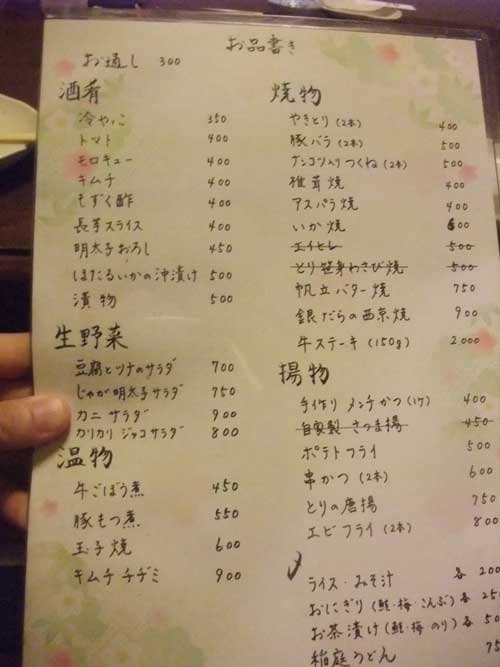 お品書き
お通し 300
酒肴
冷やっこ 350
トマト 400
モロキュー 400
キムチ 400
もずく酢 400
長芋スライス 400
明太子おろし 450
ほたるいかの沖漬け 500
漬物 500
生野菜
豆腐とツナのサラダ 700
じゃが明太子サラダ 750
カニサラダ 900
カリカリジャコサラダ 800
温物
牛ごぼう煮 450
豚もつ煮 550
玉子焼 600
キムチチヂミ 900
焼物
やきとり(2本) 400
豚バラ(2本) 500
ナンコツ入りつくね(2本) 500
椎茸焼 400
アスパラ焼 400
いか焼 600
エイヒレ 500
とり笹身わさび焼 500
帆立バター焼 750
銀だらの西京焼 900
牛ステーキ(150g) 2,000
揚物
手作りメンチかつ(1ケ) 400
自家製さつま揚 450
ポテトフライ 500
串かつ(2本) 600
とりの唐揚 500
エビフライ(2本) 800
ライス・みそ汁 各200
おにぎり(鮭・梅・こんぶ)各25
お茶漬け(鮭・梅・のり)各50
稲庭うどん 75